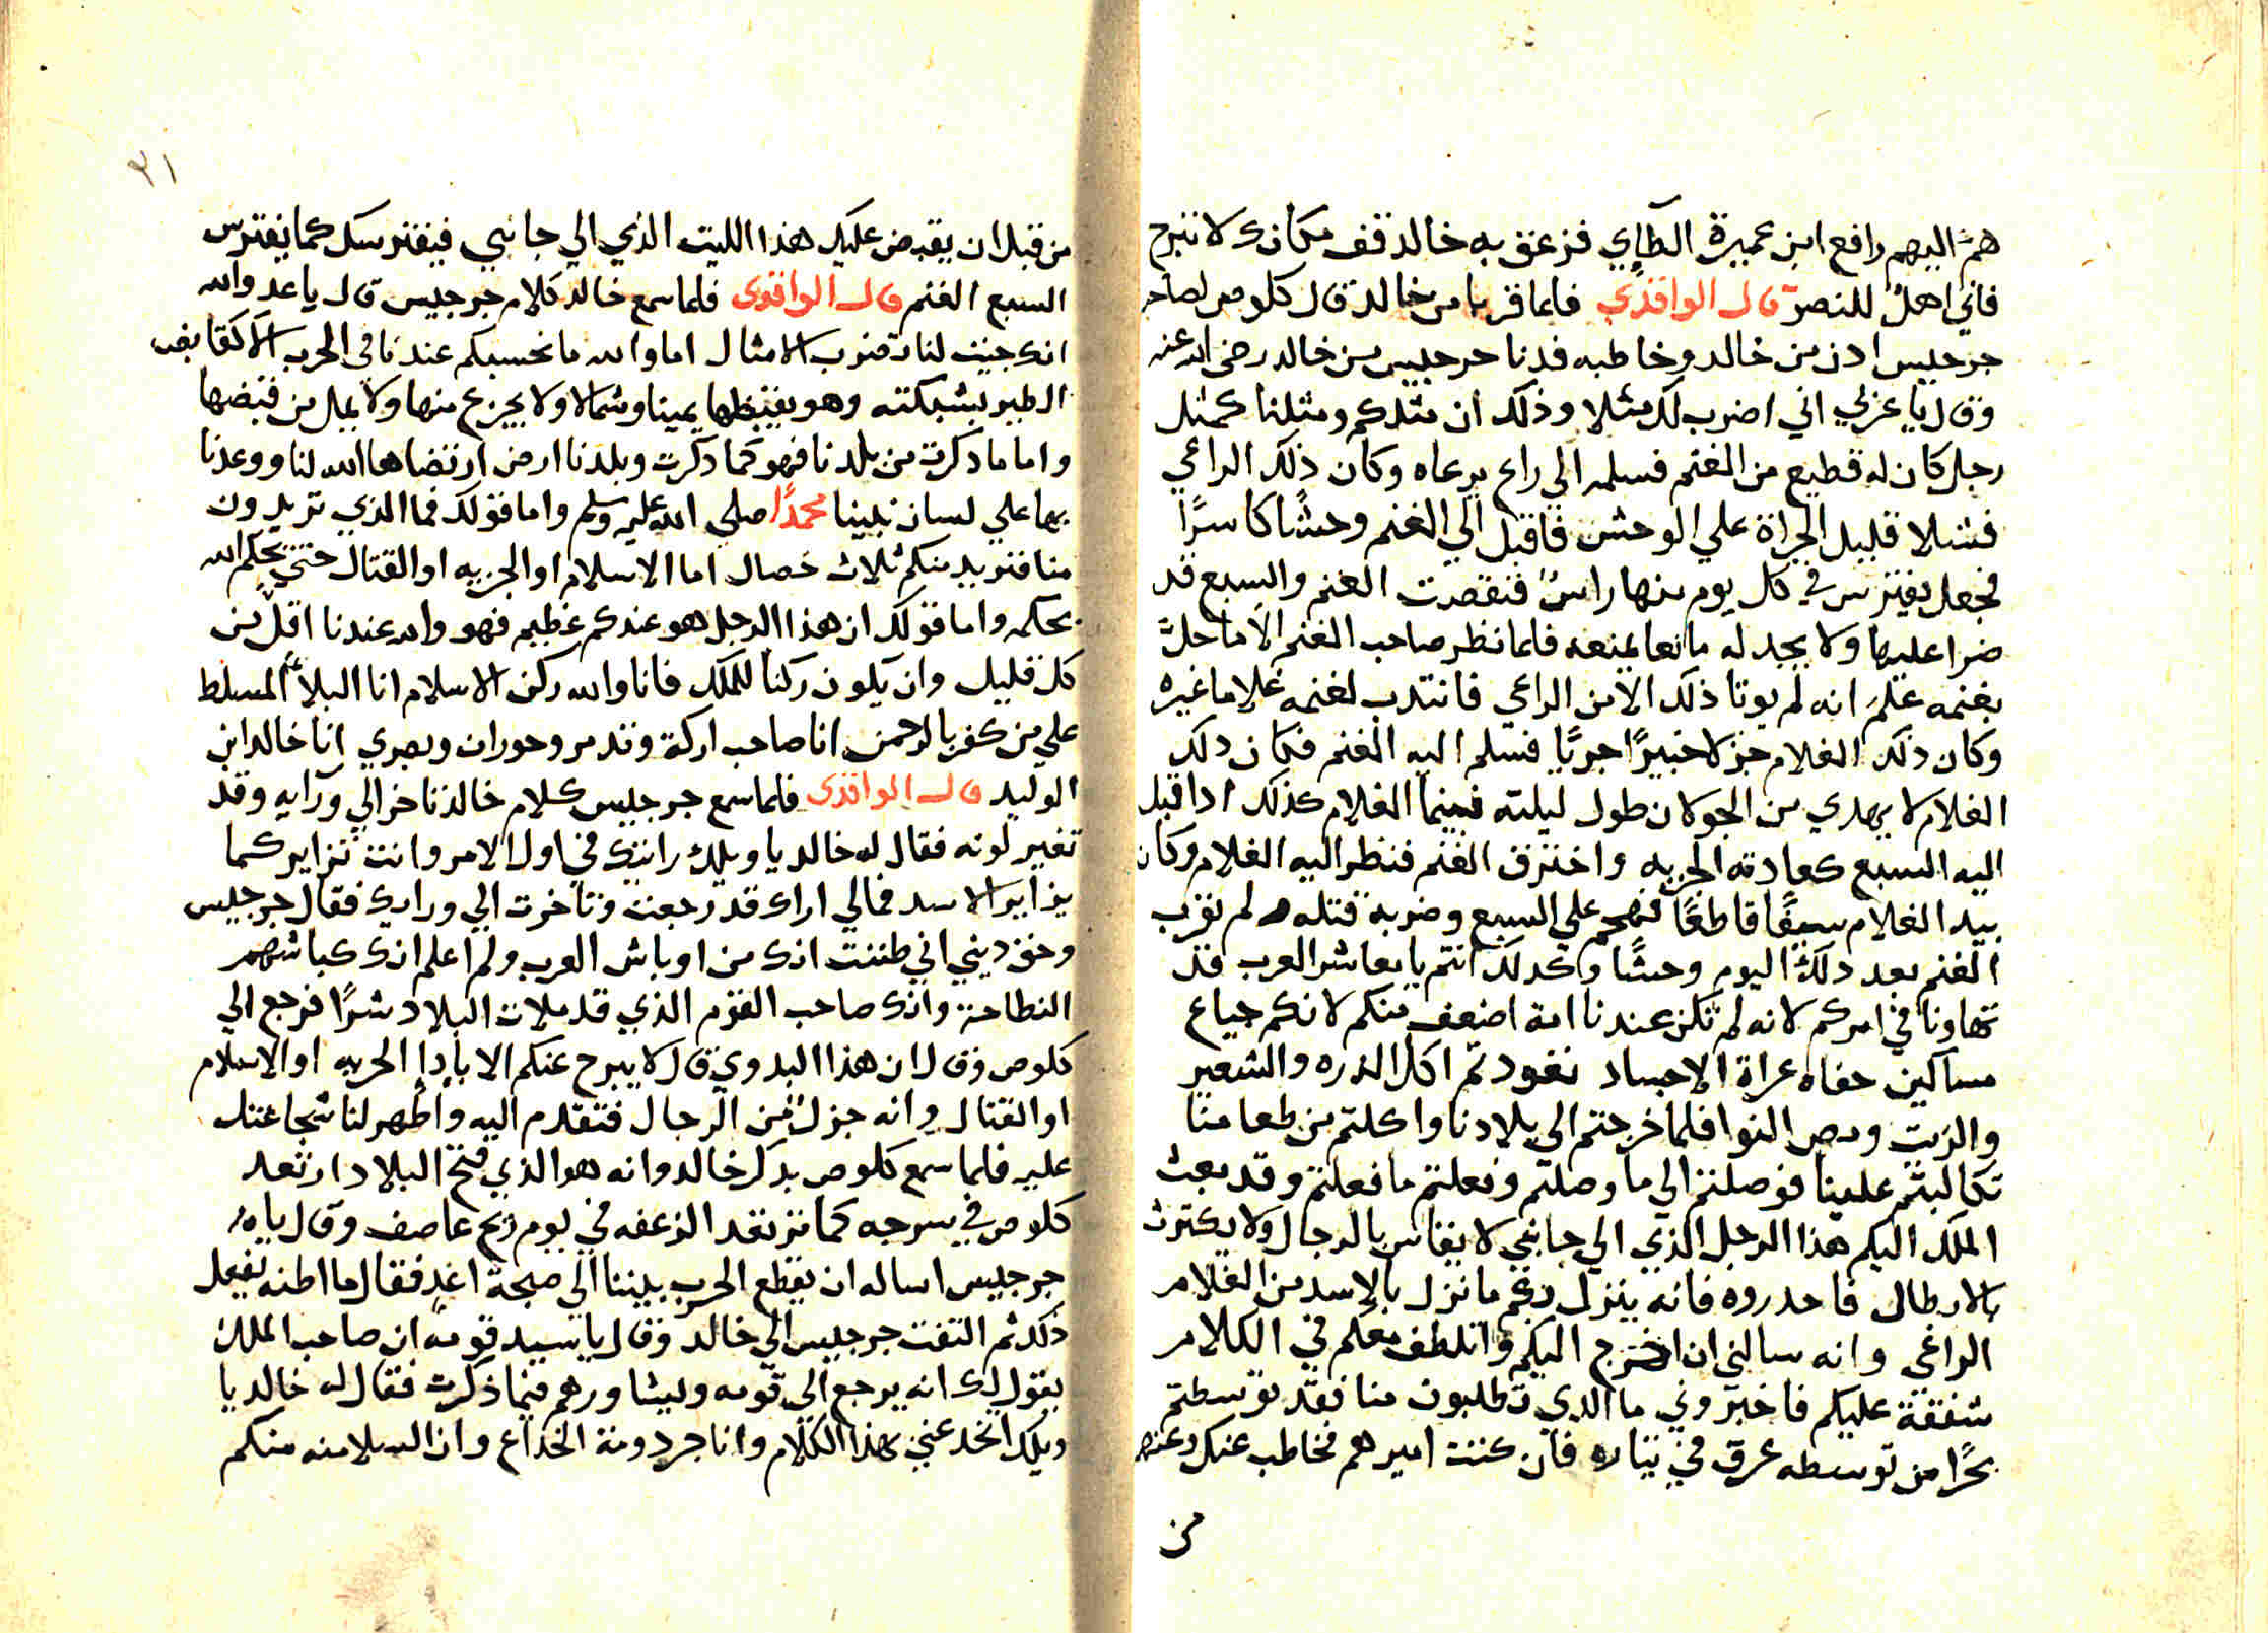 همّ اليهم رافع ابن عميرة الطآي فزعق به خالد قف مكانك لا تبرح
فاني اهل للنصرة قال الواقدي فلما قربا من خالد قال كلوص لصاحبه
جرجيس ادن من خالد وخاطبه فدنا جرجيس من خالد رضي الله عنه
وقال يا عربي اني اضرب لك مثلا وذلك ان مثلكم ومثلنا كمثل
رجل كان له قطيع من الغنم فسلمه الي راع يرعاه وكان ذلك الراعي
فشلا قليل الجراة علي الوحش فاقبل الي الغنم وحشًا كاسرًا
فجعل يفترس في كل يوم منها راسٌ فنقصت الغنم والسبع قد
ضرا عليها ولا يجد له مانعا يمنعه فلما نظر صاحب الغنم الا ما حلّ
بغنمه علم انه لم يوتا ذلك الا من الراعي فانتدب لغنمه غلاما غيره
وكان ذلك الغلام جزلا خبيرًا جريًا فسلم اليه الغنم فكان دلك
الغلام لا يهدي من الجولان طول ليلته فبينما الغلام كذلك ادا قبل
اليه السبع كعادته الجريه واخترق الغنم فنظر اليه الغلام وكان
بيد الغلام سيفًا قاطعًا فهجم علي السبع وضربه قتله ولم تقرب
الغنم بعد دلك اليوم وحشًا وكدلك انتم يا معاشر العرب قد
تهاونا في امركم لانه لم تكن عندنا امة اضعف منكم لانكم جياع
مساكين حفاه عراة الاجساد تعودتم اكل الدره والشعير
والزيت ومص النوا فلما خرجتم الي بلادنا واكلتم من طعامنا
تكالبتم علينا فوصلتم الي ما وصلتم وفعلتم ما فعلتم وقد بعث
الملك اليكم هذا الرجل الذي الي جانبي لا يقاس بالرجال ولا يكترث
بالابطال فاحدروه فانه ينزل بكم ما نزل بالاسد من الغلام
الراعي وانه سالني ان اخرج اليكم واتلطف معكم في الكلام
شفقة عليكم فاخبروني ما الدي تطلبون منا فقد توسطتم
بحرًا من توسطه غرق في تياره فان كنت اميرهم فخاطب عنك وعنهم
من
٢١
من قبل ان يقبض عليك هذا الليث الذي الي جانبي فيفترسك كما يفترس
السبع الغنم قال الواقدي فلما سمع خالد كلام جرجيس قال يا عدو الله
انك جيت لنا تضرب الامثال اما والله ما نحسبكم عندنا في الحرب الا كقابض
الطير بشبكته وهو يقبضها يمينا وشمالا ولا يجزع منها ولا يمل من قبضها
واما ما دكرت من بلدنا فهو كما دكرت وبلدنا ارض ارتضاها الله لنا ووعدنا
بها علي لسان نبينا محمدًا صلي الله عليه وسلم واما قولك فما الذي تريدون
منا فنريد منكم ثلاث خصال اما الاسلام او الجزيه او القتال حتي يحكم الله
بحكمه واما قولك ان هذا الرجل هو عندكم عظيم فهو والله عندنا اقلّ من
كل قليل وان يكون ركنا للملك فانا والله ركن الاسلام انا البلآء المسلط
علي من كفر بالرحمن انا صاحب اركة وتدمر وحوران وبصري انا خالد ابن
الوليد قال الواقدي فلما سمع جرجيس كلام خالد تاخر الي ورآيه وقد
تغير لونه فقال له خالد يا ويلك رايتك في اول الامر وانت تزاير كما
يزاير الاسد فمالي اراك قد رجعت وتاخرت الي ورايك فقال جرجيس
وحق ديني اني ظننت انك من اوباش العرب ولم اعلم انك كباشهم
النطاحة وانك صاحب القوم الذي قد ملات البلاد شرًا فرجع الي
كلوص وقال ان هذا البدوي قال لا يبرح عنكم الا بادإ الجزيه او الاسلام
او القتال وانه جزل من الرجال فتقدم اليه واظهر لنا شجاعتك
عليه فلما سمع كلوص بدكر خالد وانه هو الذي فتح البلاد ارتعد
كلوص في سرجه كما ترتعد الزعفه في يوم ريح عاصف وقال يا
جرجيس اساله ان يقطع الحرب بيننا الي صبحة اغدٍ فقال ما اظنه يفعل
ذلك ثم التفت جرجيس الي خالد وقال يا سيد قومه ان صاحب الملك
يقول لك انه يرجع الي قومه وليشاورهم فيما ذكرت فقال له خالد يا
ويلك اتخدعني بهذا الكلام وانا جردومة الخداع وان السلامه منكم